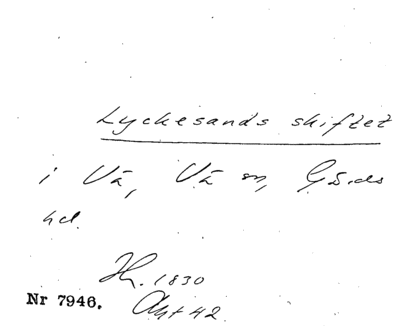 Lyckesands skiftet
i Vä, Vä sn, Gärds
hd.
Hr. 1830
Nr 7946. Akt 42